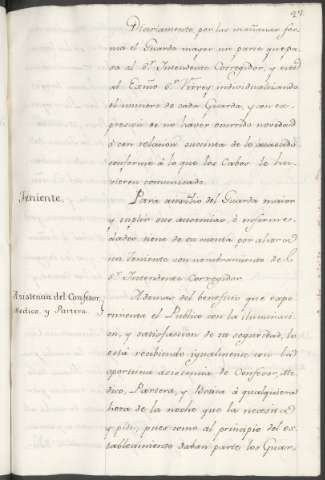 27.
Diariamente por las mañanas for-
ma el Guarda mayor un parte que pa-
sa al Sr. Intendente Corregidor, y este
al Exmo Sr. Virrey individualizando
el numero de cada Guarda, y con ex-
presion de no haver ocurrido novedad
ó con relacion sucinta de lo acaecido
conforme à la que los Cabos le hu-
vieren comunicado.
Teniente.
Para auxilio del Guarda maior
y suplir sus ausencias, ò enfermedades
tiene de su cuenta por ahora
un teniente con nombramiento de el
Sr. Intendente Corregidor.
Asistencia del Confesor,
Medico, y Partera.
Ademas del beneficio que expe-
rimenta el Publico con la iluminaci-
on, y satisfaccion de su seguridad, lo
està recibiendo igualmente con la
oportuna asistencia de Confesor, Me-
dico, Partera, y Botica à qualquiera
hora de la noche que la necesita
y pide, pues como al principio del es-
tablecimiento daban parte los Guar-